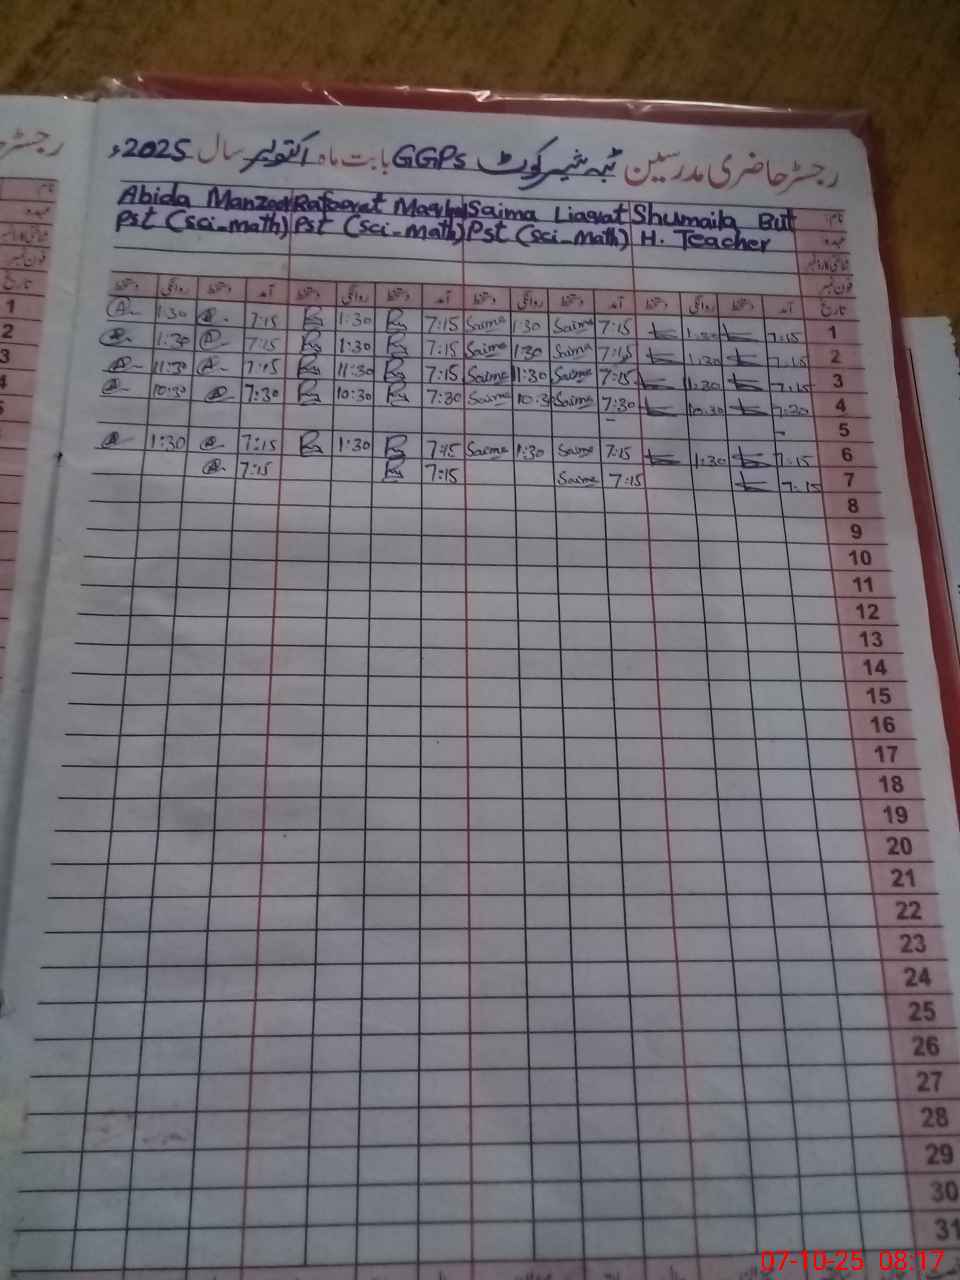 رجسٹر حاضری مدرسین GGPs ٹبہ شیر کوٹ بابت ماہ اکتوبر سال 2025ء
Abida Manzoor Rafaqat Saima Liaqat Shumaila But نام:
Pst (sci-math) Pst (sci-math) Pst (sci-math) H. Teacher عہدہ:
شناختی کارڈ نمبر
فون نمبر
دستخط روانگی دستخط آمد دستخط روانگی دستخط آمد دستخط روانگی دستخط آمد دستخط روانگی دستخط آمد تاریخ
1:30 7:15 1:30 7:15 Saima 1:30 Saima 7:15 1:30 7:15 1
1:30 7:15 1:30 7:15 Saima 1:30 Saima 7:15 1:30 7:15 2
11:30 7:15 11:30 7:15 Saima 11:30 Saima 7:15 11:30 7:15 3
10:30 7:30 10:30 7:30 Saima 10:30 Saima 7:30 10:30 7:30 4
5
1:30 7:15 1:30 7:15 Saima 1:30 Saima 7:15 1:30 7:15 6
7:15 7:15 Saima 7:15 7:15 7
8
9
10
11
12
13
14
15
16
17
18
19
20
21
22
23
24
25
26
27
28
29
30
31
07-10-25 08:17